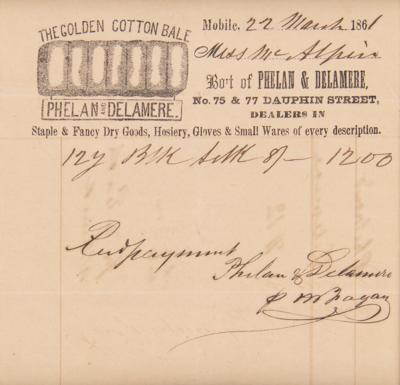 THE GOLDEN COTTON BALE
PHELAN AND DELAMERE.
Mobile, 22 March 1861
Miss McAlpin
Bo't of PHELAN & DELAMERE,
No. 75 & 77 DAUPHIN STREET,
DEALERS IN
Staple & Fancy Dry Goods, Hosiery, Gloves & Small Wares of every description.
12y Blk Silk 8/- 1200
Recd payment
Phelan & Delamere